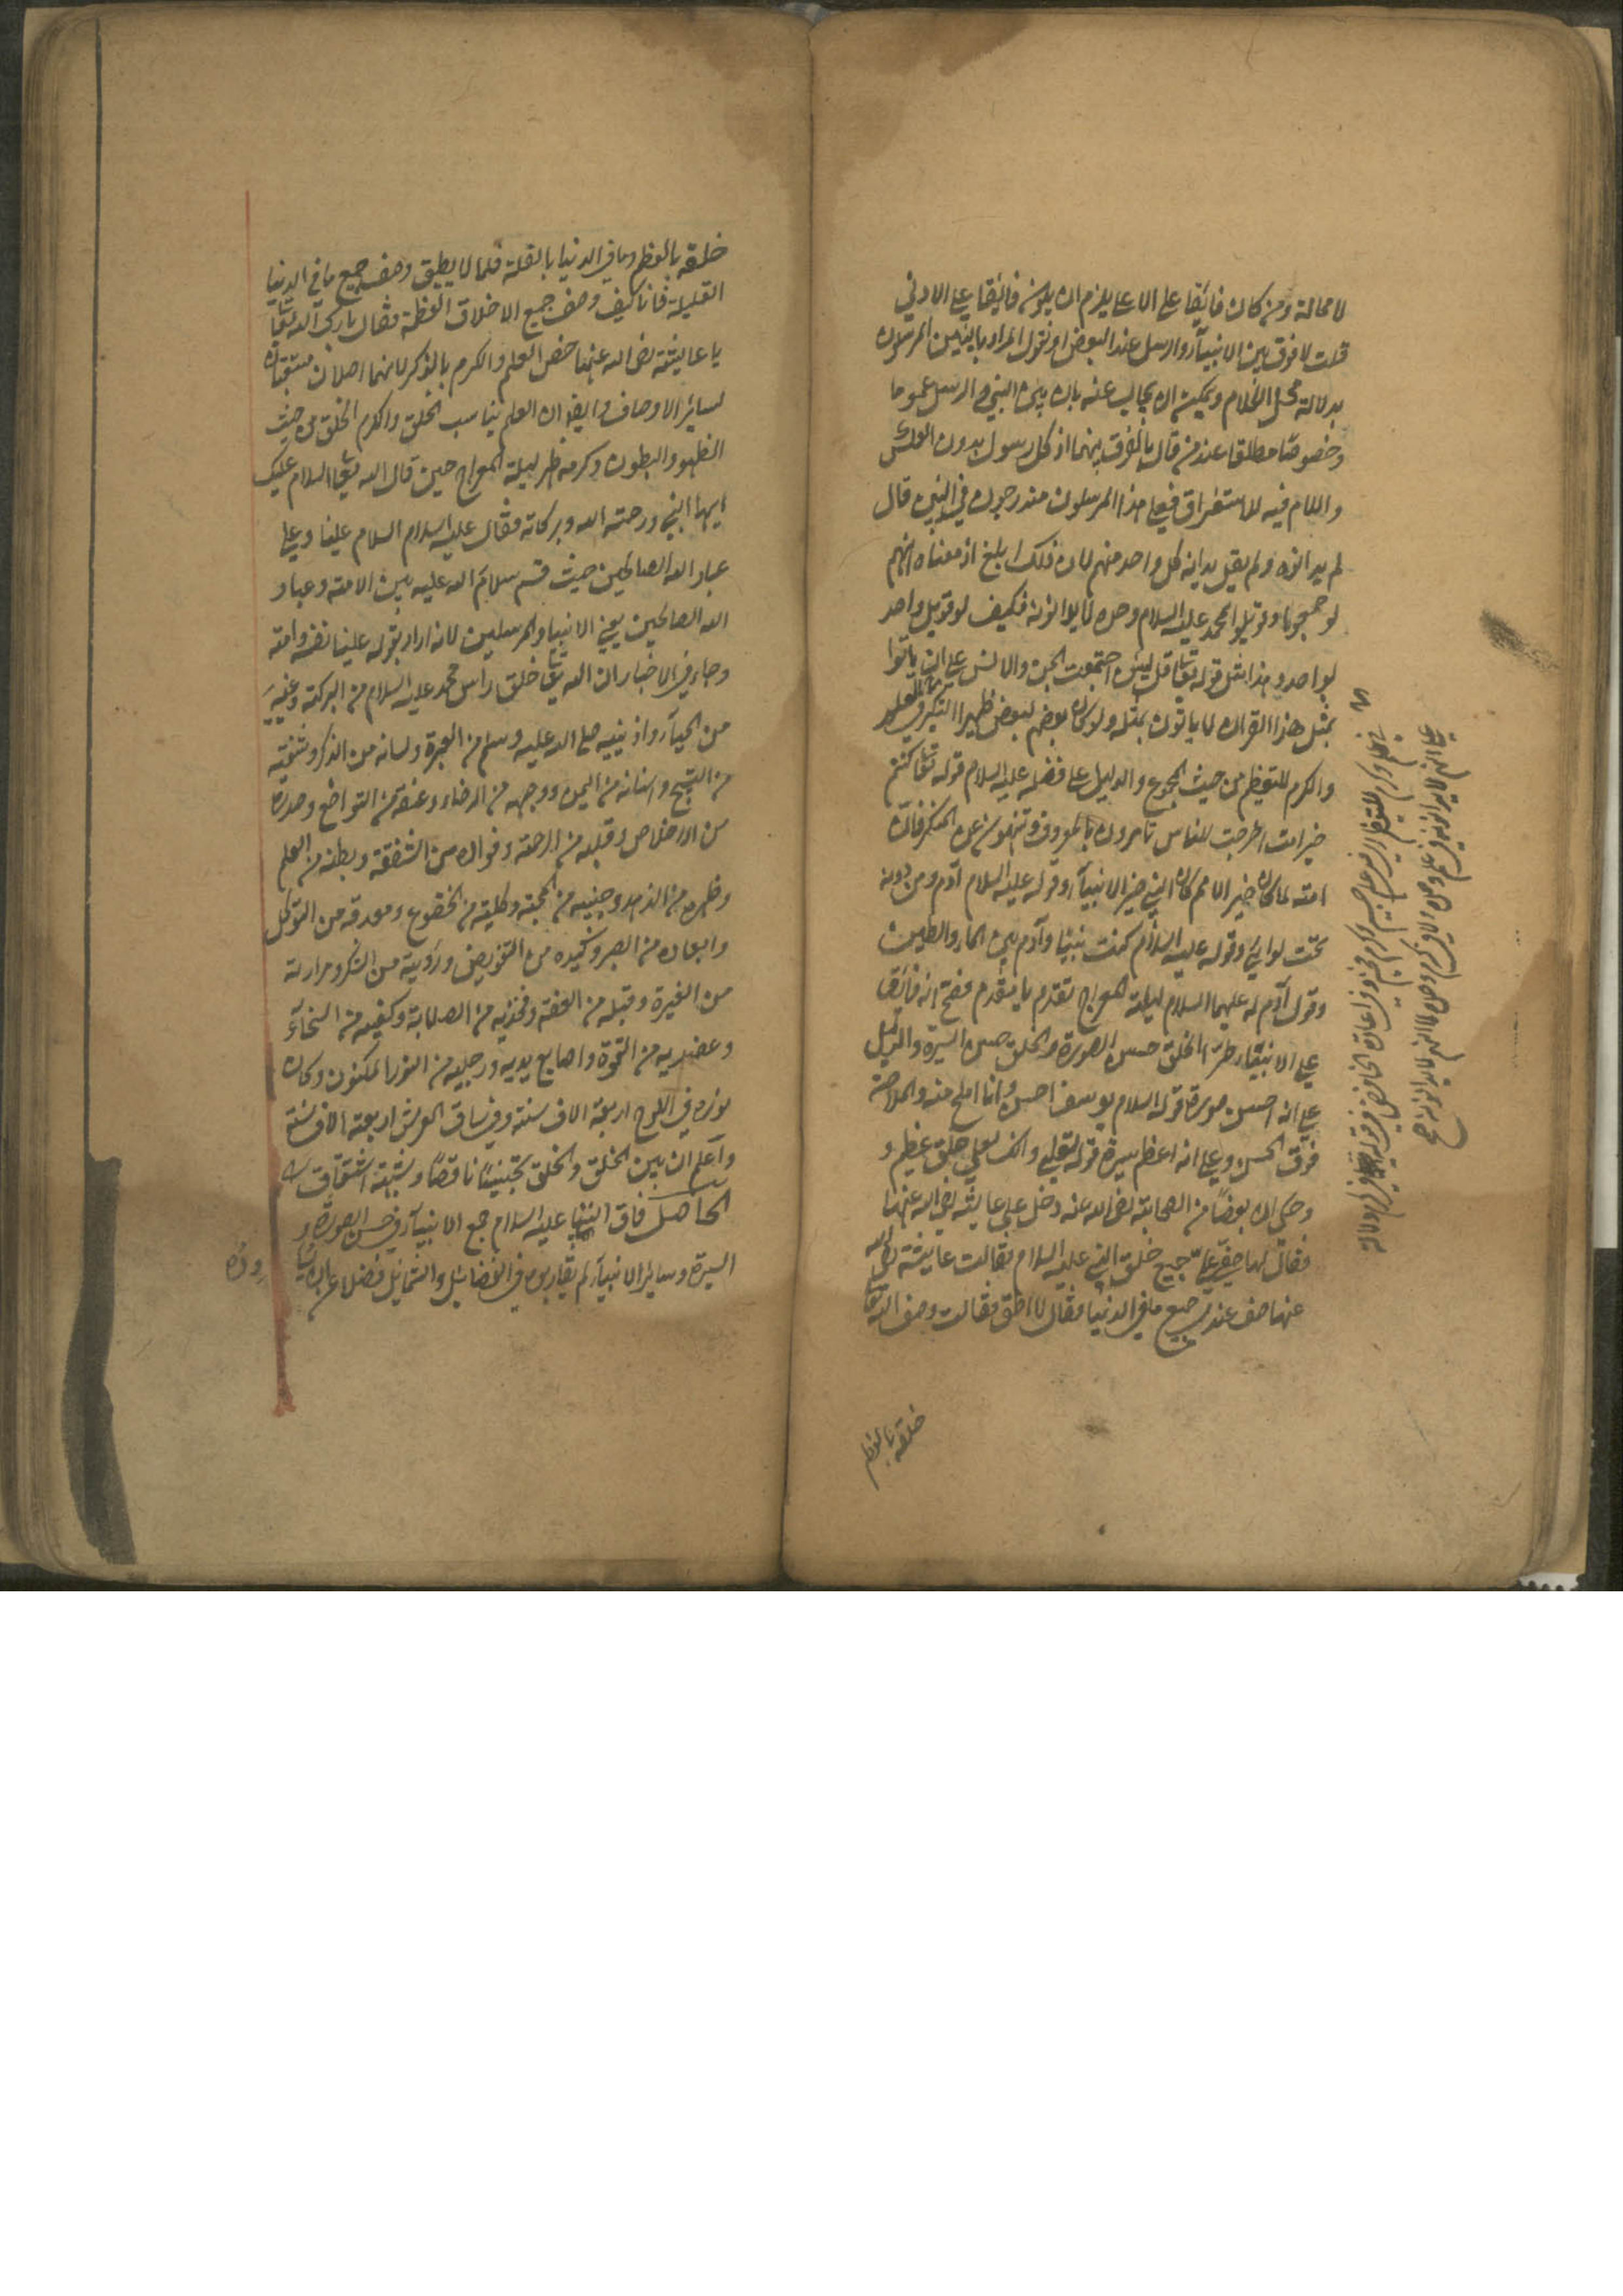 لا محالة ومن كان فائقا على الاعلى يلزم ان يكون فائقا على الادنى
قلت لا فرق بين الانبياء والرسل عند البعض او نقول المراد بالنبيين المرسلون
بدلالة محل الكلام ويمكن ان يجاب عنه بان بين النبي والرسل عموما
وخصوصا مطلقا عند من قال بالفرق بينهما اذ كل رسول بدون العكس
واللام فيه للاستغراق فعلى هذا المرسلون مندرجون في النبي قال
لم يدانوه ولم يقل يدانه كل واحد منهم لان ذلك ابلغ اذ معناه انهم
لو جمعوا وقوبلوا لمحمد عليه السلام وحده لا يوازونه فكيف لو قوبل واحد
بواحد وهذا مثل قوله تعا قل لئن اجتمعت الجن والانس على ان ياتوا
بمثل هذا القران لا ياتون بمثله ولو كان بعضهم لبعض ظهيرا التنكير في العلم
والكرم للتعظيم من حيث المجموع والدليل على فضله عليه السلام قوله تعا كنتم
خير امت اخرجت للناس تامرون بالمعروف وتنهون عن المنكر فان
امته لما كان خير الامم كان النبي خير الانبياء وقوله عليه السلام آدم ومن دونه
تحت لوايي وقوله عليه السلام كنت نبيا وآدم بين الماء والطين
وقول آدم له عليهما السلام ليلة المعراج تقدم يا مقدم فصح انه فائق
على الانبياء طرا الخلق حسن الصورة والخلق حسن السيرة والدليل
على انه احسن صورة قوله السلام يوسف احسن وانا املح منه والملاحة
فوق الحسن وعلى انه اعظم سيرة قوله تعالى وانك لعلى خلق عظيم و
وحكي ان بعضا من الصحابة رضى الله عنه دخل على عايشه رضى الله عنها
فقال لها صفي على جميع خلق النبي عليه السلام فقالت عايشة رضى الله
عنها صف عندي جميع ما في الدنيا فقال لا اطق فقالت وصف الله تعا
خلقه بالعظم
خلقه بالعظم وما في الدنيا بالقلة فلما لا يطيق وصف جميع ما في الدنيا
القليلة فانا كيف وصف جميع الاخلاق العظمة فقال بارك الله تعا
يا عايشة رضى الله عنها خص العلم والكرم بالذكر لانهما اصلان مستتبعان
لسائر الاوصاف وايضا ان العلم يناسب الخلق والكرم الخلق من حيث
الظهور والبطون وكرمه ظهر ليلة المعراج حين قال الله تعا السلام عليك
ايها النبي ورحمة الله وبركاته فقال عليه السلام السلام علينا وعلى
عباد الله الصالحين حيث قسم سلام الله عليه بين الامة وعباد
الله الصالحين يعني الانبيا والمرسلين لانه اراد بقوله علينا نفسه وامته
وجاء في الاخبار ان الله تعا خلق راس محمد عليه السلام من البركة وعينيه
من الحياء واذنيه صلى الله عليه وسلم من العبرة ولسانه من الذكر وشفتيه
من التسبيح واسنانه من اليمن ووجهه من الرضاء وعنقه من التواضع وصدره
من الاخلاص وقلبه من الرحمة وفواده من الشفقة وبطنه من العلم
وظهره من الزهد وجنبيه من المحبة وكليته من الخضوع ومعدته من التوكل
وابعاده من الصبر وكبده من التفويض وروئيته من الشكر ومرارته
من الغيرة وقبله من العفة وفخذيه من الصلابة وكفيه من السخاء
وعضديه من القوة واصابع يديه ورجليه من النور المكنون وكان
نوره في اللوح اربعة الاف سنة وفي ساق العرش اربعة الاف سنة
واعلم ان بين الخلق والخلق تجنيسا ناقصا وشبه اشتقاق
الحاصل فاق النبي عليه السلام جمع الانبياء في حسن الصورة و
السيرة وساير الانبياء لم يقاربوه في الفضائل والشمائل فضلا عن ان